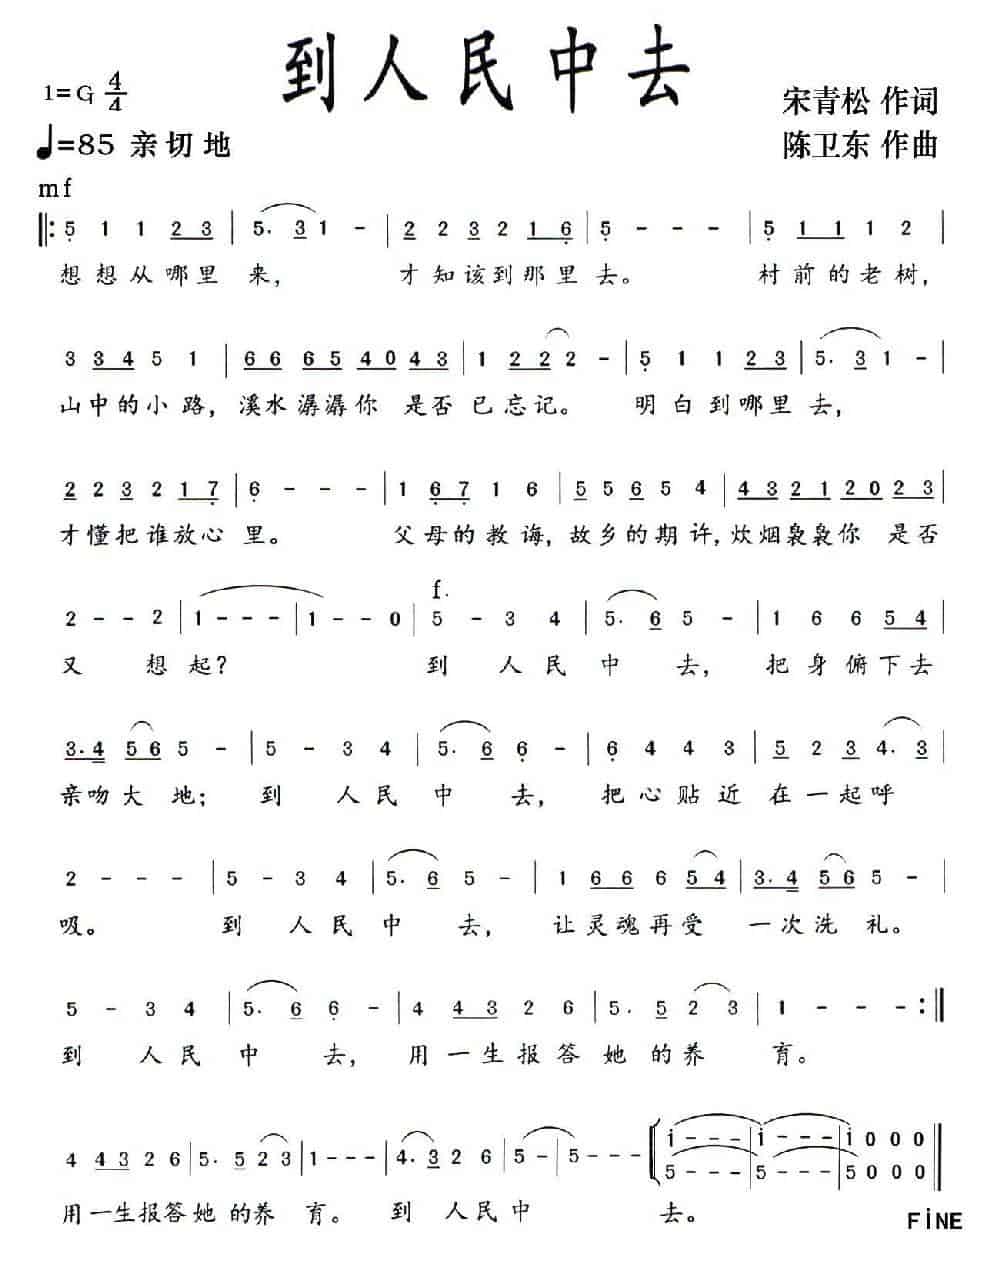 到人民中去
1=G 4/4
宋青松 作词
♩=85 亲切地
陈卫东 作曲
mf
‖: 5̣ 1 1 2 3 | 5. 3 1 - | 2 2 3 2 1 6̣ | 5̣ - - - | 5̣ 1 1 1 2 |
想想从哪里来, 才知该到那里去。 村前的老树,
3 3 4 5 1 | 6 6 6 5 4 0 4 3 | 1 2 2 2 - | 5̣ 1 1 2 3 | 5. 3 1 - |
山中的小路, 溪水潺潺你 是否已忘记。 明白到哪里去,
2 2 3 2 1 7̣ | 6̣ - - - | 1 6̣ 7̣ 1 6 | 5 5 6 5 4 | 4 3 2 1 2 0 2 3 |
才懂把谁放心里。 父母的教诲, 故乡的期许, 炊烟袅袅你 是否
2 - - 2 | 1 - - - | 1 - - 0 | f. 5 - 3 4 | 5. 6 5 - | 1 6 6 5 4 |
又 想起? 到 人民中 去, 把身俯下去
3. 4 5 6 5 - | 5 - 3 4 | 5. 6 6̣ - | 6̣ 4 4 3 | 5 2 3 4. 3 |
亲吻大地; 到 人民中 去, 把心贴近 在一起呼
2 - - - | 5 - 3 4 | 5. 6 5 - | 1 6 6 6 5 4 | 3. 4 5 6 5 - |
吸。 到 人民中 去, 让灵魂再受 一次洗礼。
5 - 3 4 | 5. 6 6̣ - | 4 4 3 2 6 | 5. 5 2 3 | 1 - - - :‖
到 人民中 去, 用一生报答她的养 育。
4 4 3 2 6 | 5. 5 2 3 | 1 - - - | 4. 3 2 6 | 5 - | 5 - - - | i - - - | i - - - | i 0 0 0 ‖
5 - - - | 5 - - - | 5 0 0 0
用一生报答她的养 育。 到 人民中 去。
FiNE